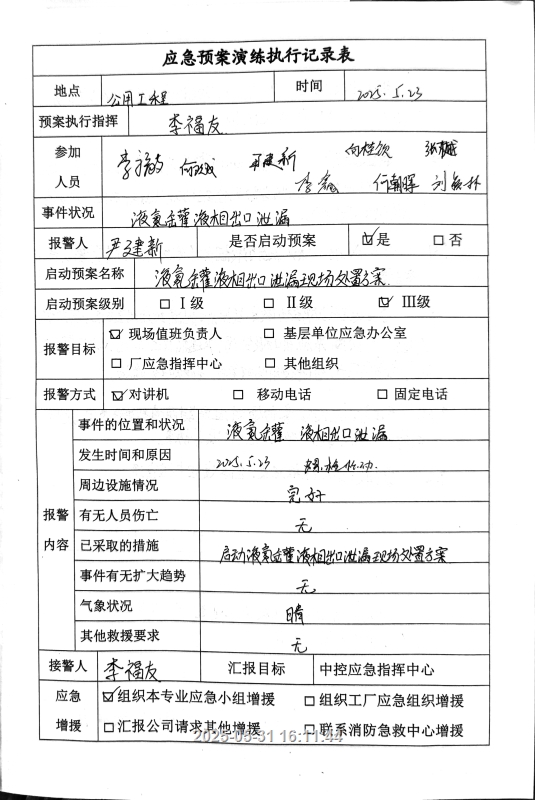 应急预案演练执行记录表
地点 公用工程 时间 2025.5.23
预案执行指挥 李福友
参加人员 李福友 尹建新
李鑫 何朝晖
事件状况 液氨金罐液相出口泄漏
报警人 尹建新 是否启动预案 ☑是 □否
启动预案名称 液氨金罐液相出口泄漏现场处置方案
启动预案级别 □Ⅰ级 □Ⅱ级 ☑Ⅲ级
报警目标 ☑现场值班负责人 □基层单位应急办公室
□厂应急指挥中心 □其他组织
报警方式 ☑对讲机 □移动电话 □固定电话
报警内容
事件的位置和状况 液氨金罐 液相出口泄漏
发生时间和原因 2025.5.23 螺栓松动.
周边设施情况 完好
有无人员伤亡 无
已采取的措施 启动液氨金罐液相出口泄漏现场处置方案
事件有无扩大趋势 无
气象状况 晴
其他救援要求 无
接警人 李福友 汇报目标 中控应急指挥中心
应急增援 ☑组织本专业应急小组增援 □组织工厂应急组织增援
□汇报公司请求其他增援 □联系消防急救中心增援
2025-05-31 16:11:44